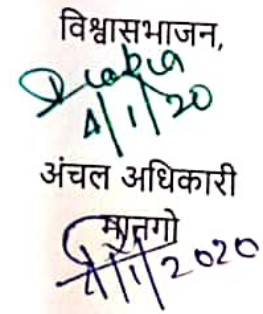 विश्वासभाजन,
4/1/20
अंचल अधिकारी
मानगो
4/1/2020